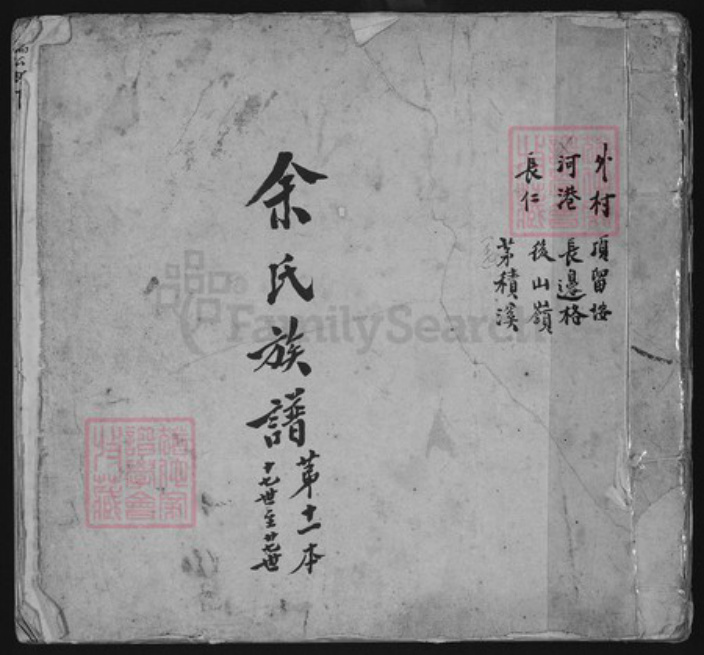 外村 須留垵
河港 長邊格
長仁 後山嶺
茅積溪
余氏族譜
第十一本
十七世至廿七世
FamilySearch